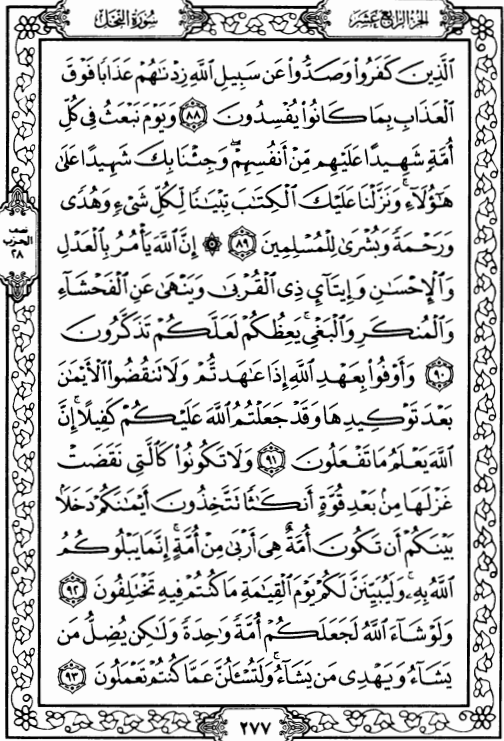 سُورَةُ النَّحْلِ
الجُزْءُ الرَّابِعَ عَشَرَ
الَّذِينَ كَفَرُوا۟ وَصَدُّوا۟ عَن سَبِيلِ اللَّهِ زِدْنَٰهُمْ عَذَابًا فَوْقَ
الْعَذَابِ بِمَا كَانُوا۟ يُفْسِدُونَ ٨٨ وَيَوْمَ نَبْعَثُ فِى كُلِّ
أُمَّةٍ شَهِيدًا عَلَيْهِم مِّنْ أَنفُسِهِمْ ۖ وَجِئْنَا بِكَ شَهِيدًا عَلَىٰ
هَٰٓؤُلَآءِ ۚ وَنَزَّلْنَا عَلَيْكَ الْكِتَٰبَ تِبْيَٰنًا لِّكُلِّ شَىْءٍ وَهُدًى
وَرَحْمَةً وَبُشْرَىٰ لِلْمُسْلِمِينَ ٨٩ ۞ إِنَّ اللَّهَ يَأْمُرُ بِالْعَدْلِ
نصف
الحزب
٢٨
وَالْإِحْسَٰنِ وَإِيتَآئِ ذِى الْقُرْبَىٰ وَيَنْهَىٰ عَنِ الْفَحْشَآءِ
وَالْمُنكَرِ وَالْبَغْىِ ۚ يَعِظُكُمْ لَعَلَّكُمْ تَذَكَّرُونَ
٩٠ وَأَوْفُوا۟ بِعَهْدِ اللَّهِ إِذَا عَٰهَدتُّمْ وَلَا تَنقُضُوا۟ الْأَيْمَٰنَ
بَعْدَ تَوْكِيدِهَا وَقَدْ جَعَلْتُمُ اللَّهَ عَلَيْكُمْ كَفِيلًا ۚ إِنَّ
اللَّهَ يَعْلَمُ مَا تَفْعَلُونَ ٩١ وَلَا تَكُونُوا۟ كَالَّتِى نَقَضَتْ
غَزْلَهَا مِنۢ بَعْدِ قُوَّةٍ أَنكَٰثًا تَتَّخِذُونَ أَيْمَٰنَكُمْ دَخَلًۢا
بَيْنَكُمْ أَن تَكُونَ أُمَّةٌ هِىَ أَرْبَىٰ مِنْ أُمَّةٍ ۚ إِنَّمَا يَبْلُوكُمُ
اللَّهُ بِهِۦ ۚ وَلَيُبَيِّنَنَّ لَكُمْ يَوْمَ الْقِيَٰمَةِ مَا كُنتُمْ فِيهِ تَخْتَلِفُونَ ٩٢
وَلَوْ شَآءَ اللَّهُ لَجَعَلَكُمْ أُمَّةً وَٰحِدَةً وَلَٰكِن يُضِلُّ مَن
يَشَآءُ وَيَهْدِى مَن يَشَآءُ ۚ وَلَتُسْـَٔلُنَّ عَمَّا كُنتُمْ تَعْمَلُونَ ٩٣
٢٧٧